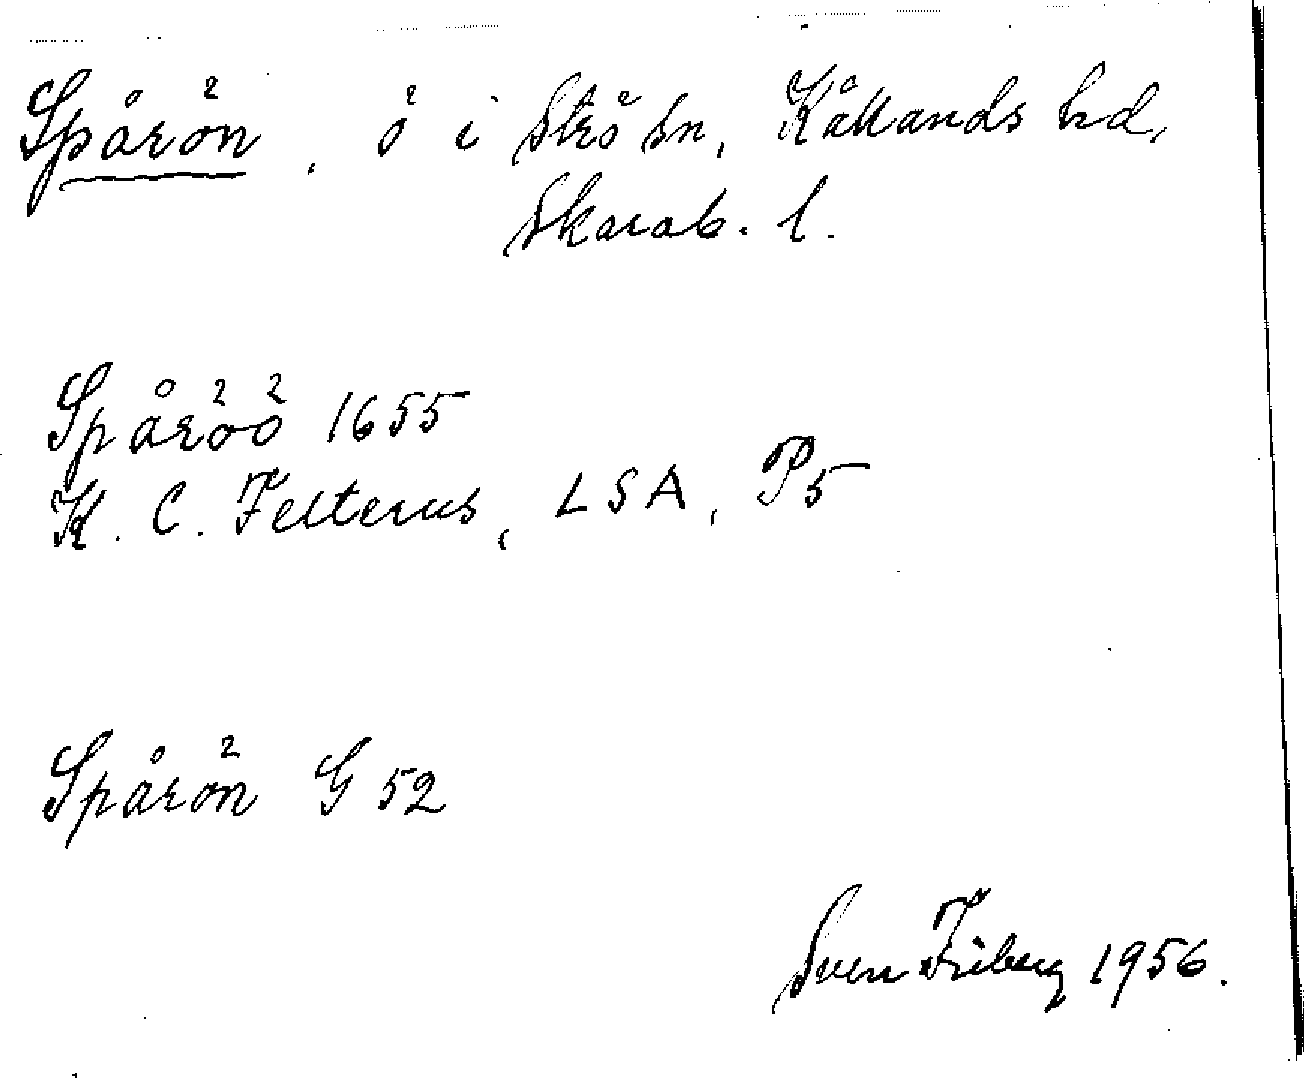 Spårön, ö i Strö sn, Kållands hd,
Skarab. l.
Spåröö 1655
K. C. Felterus, LSA, P5
Spårön G 52
Sven Friberg 1956.